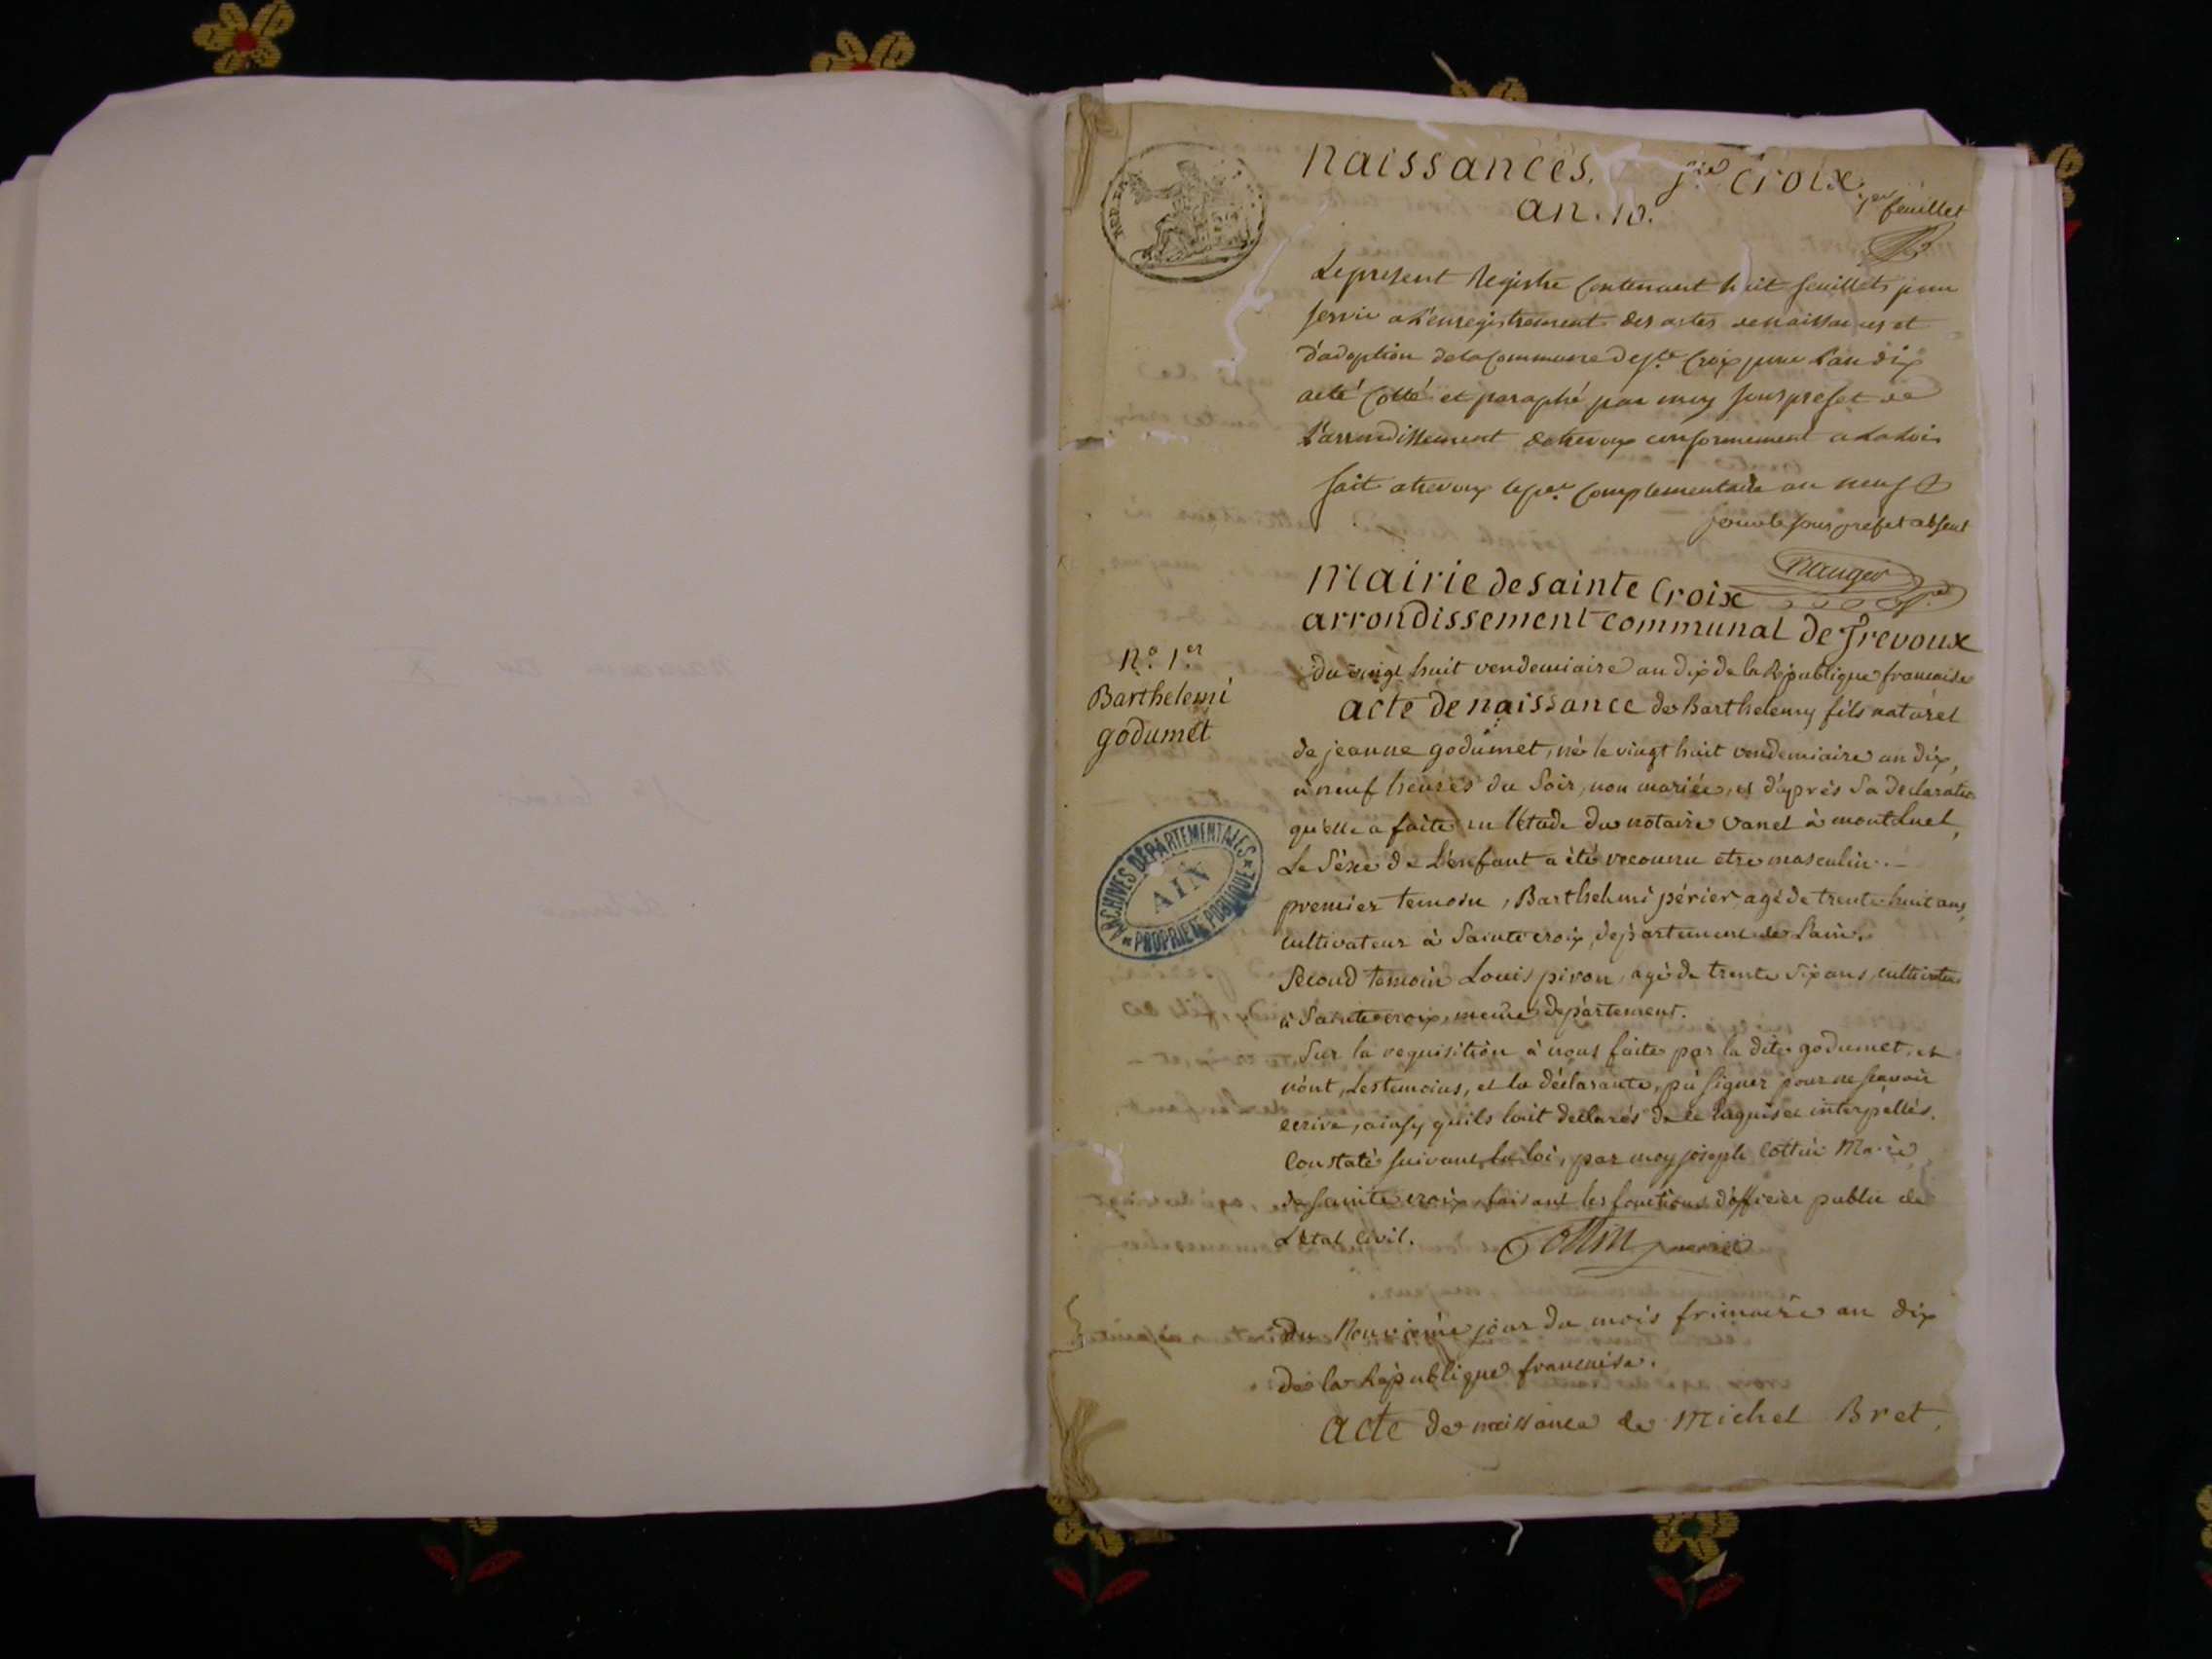 naissances. Ste Croix
an. 10.
1er feuillet
Le present Registre Contenant huit feuillets pour
servir a L'enregistrement des actes de naissances et
d'adoption de la Commune de Ste Croix pour L'an dix
a été Cotté et paraphé par moy sous prefet de
L'arrondissement de trevoux conformement a La Loi
fait a trevoux le per Complementaire an neuf
pour le sous prefet absent
mairie de sainte Croix
arrondissement communal de Trevoux
n.o 1.er
Barthelemi
godumet
du vingt huit vendemiaire an dix de la République francaise
acte de naissance de Barthelemy fils naturel
de jeanne godumet, né le vingt huit vendemiaire an dix,
à neuf heures du Soir, non mariée, et d'après Sa declaration
qu'elle a faite en l'étude du notaire vanel à montluel,
Le Séxe de L'enfant a été reconnu etre masculin. -
premier temoin, Barthelemi périer agé de trente huit ans,
cultivateur à Sainte croix, département de Lain.
Second temoin Louis piron, agé de trente Six ans, cultivateur
à Sainte croix, même département.
Sur la requisition à nous faite par la dite godumet, et
n'ont, les temoins, et la déclarante, pû signer pour ne scavoir
écrire, ainsy qu'ils l'ont declarés de ce requis et interpellés.
Constaté suivant la loi, par moy joseph Cottin Maire
de sainte croix, faisant les fonctions d'officier public de
L'état Civil. Cottin maire
du Neuvieme jour du mois frimaire an dix
de la République francaise.
acte de naissance de Michel Bret,
REP. FRA
ARCHIVES DÉPARTEMENTALES
AIN
* PROPRIÉTÉ PUBLIQUE *